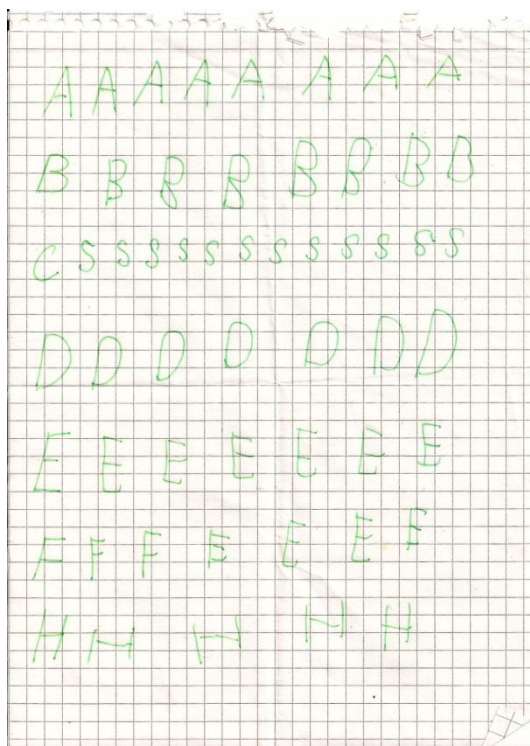 A A A A A A A A
B B B B B B B B
C S S S S S S S S S S S S
D D D D D D D
E E E E E E E
F F F E E E F
H H H H H